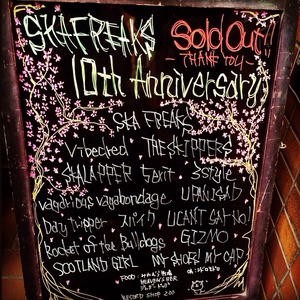 SKA FREAKS Sold Out!!
- THANK YOU -
10th Anniversary
SKA FREAKS
Vibecked THE SKIPPERS
SKALAPPER Sexit 3style
Vagarious vagabondage UPANISAD
Day tripper スパイク U CAN'T SAY NO!
Rocket of the Bulldogs GIZMO
SCOTLAND GIRL MY SHOES! MY CAP
FOOD:
HEAVEN'S HER
RECORD SHOP ZOO